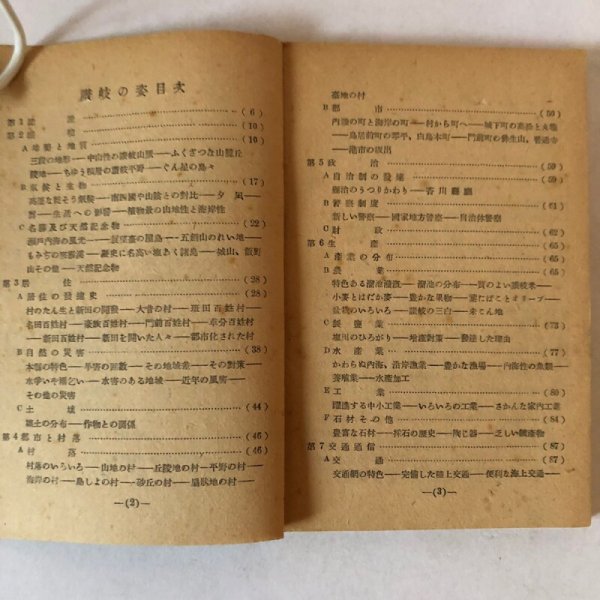 讃岐の姿目次
第1節 (6)
第2節 (10)
A 地勢と地質 (10)
三段の地形——中山性の讃岐山脈——ふくざつな山麓丘
陵地——ちゆう積層の讃岐平野——ぐん星の島々
B 気候と生物 (17)
南四國や山陰との対比——夕凪
——生活への影響——植物景の山地性と海岸性
C 名勝及び天然記念物 (22)
瀬戸内海の風光——屋島——五剣山のれい地——
もみぢの寒霞渓——歴史に名高い塩あく諸島——城山、飯野
山その他——天然記念物
第3居住 (28)
A 居住の發達史 (28)
村のたん生と新田の開發——大昔の村——班田百姓村——
名田百姓村——豪族百姓村——門前百姓村——草分百姓村
——新田百姓村——新田を開いた人々——都市化された村
B 自然の災害 (38)
本縣の特色——旱害の回数——その地域——その対策——
水爭いや雨乞い——水害のある地域——近年の風害——
その他の災害
C 土壌 (44)
土の分布——作物との関係
第4都市と村落 (46)
A 村落 (46)
村落のいろいろ——山地の村——丘陵地の村——平野の村——
海岸の村——島しよの村——砂丘の村——扇状地の村——
—(2)—
臺地の村
B 都市 (50)
内陸の町と海岸の町——村から町へ——城下町の高松と丸亀
——鳥居前町の琴平、白鳥本町——門前町の弥生山、善通寺
——港市の坂出
第5政治 (59)
A 自治制の發達 (59)
縣治のうつりかわり——香川縣廳
B 警察制度 (61)
新しい警察——國家地方警察——自治体警察
C 財政 (62)
第6生産 (65)
A 産業の分布 (65)
B 農業 (65)
特色ある溜池灌漑——溜池の分布——質のよい讃岐米——
小麥とはだか麥——豊かな果物——葉たばことオリーブ——
盆栽のいろいろ——讃岐の三白——未こん地
C 製鹽業 (73)
塩田のひろがり——増産対策——發達した理由
D 水産業 (77)
かわらぬ内海、沿岸漁業——豊かな漁場——内海性の魚類——
養殖業——水産加工
E 工業 (80)
躍進する中小工業——いろいろの工業——さかんな家内工業
F 石材その他 (84)
豊富な石材——採石の歴史——陶じ器——乏しい鑛産物
第7交通通信 (87)
A 交通 (87)
交通網の特色——完備した陸上交通——便利な海上交通——
—(3)—